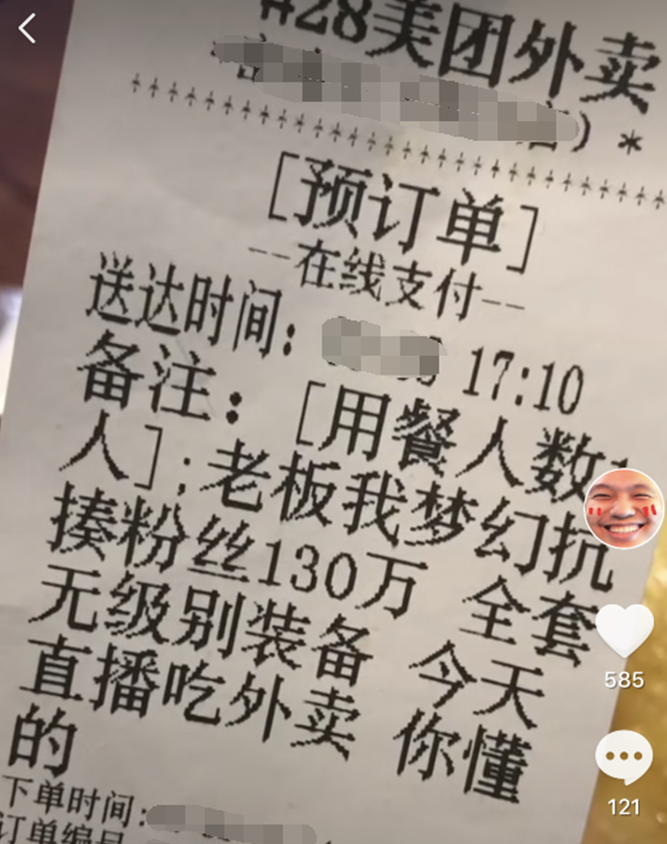 #28美团外卖
[预订单]
--在线支付--
送达时间: 17:10
备注: [用餐人数
人];老板我梦幻抗
揍粉丝130万 全套
无级别装备 今天
直播吃外卖 你懂
的
下单时间:
订单编号
585
121